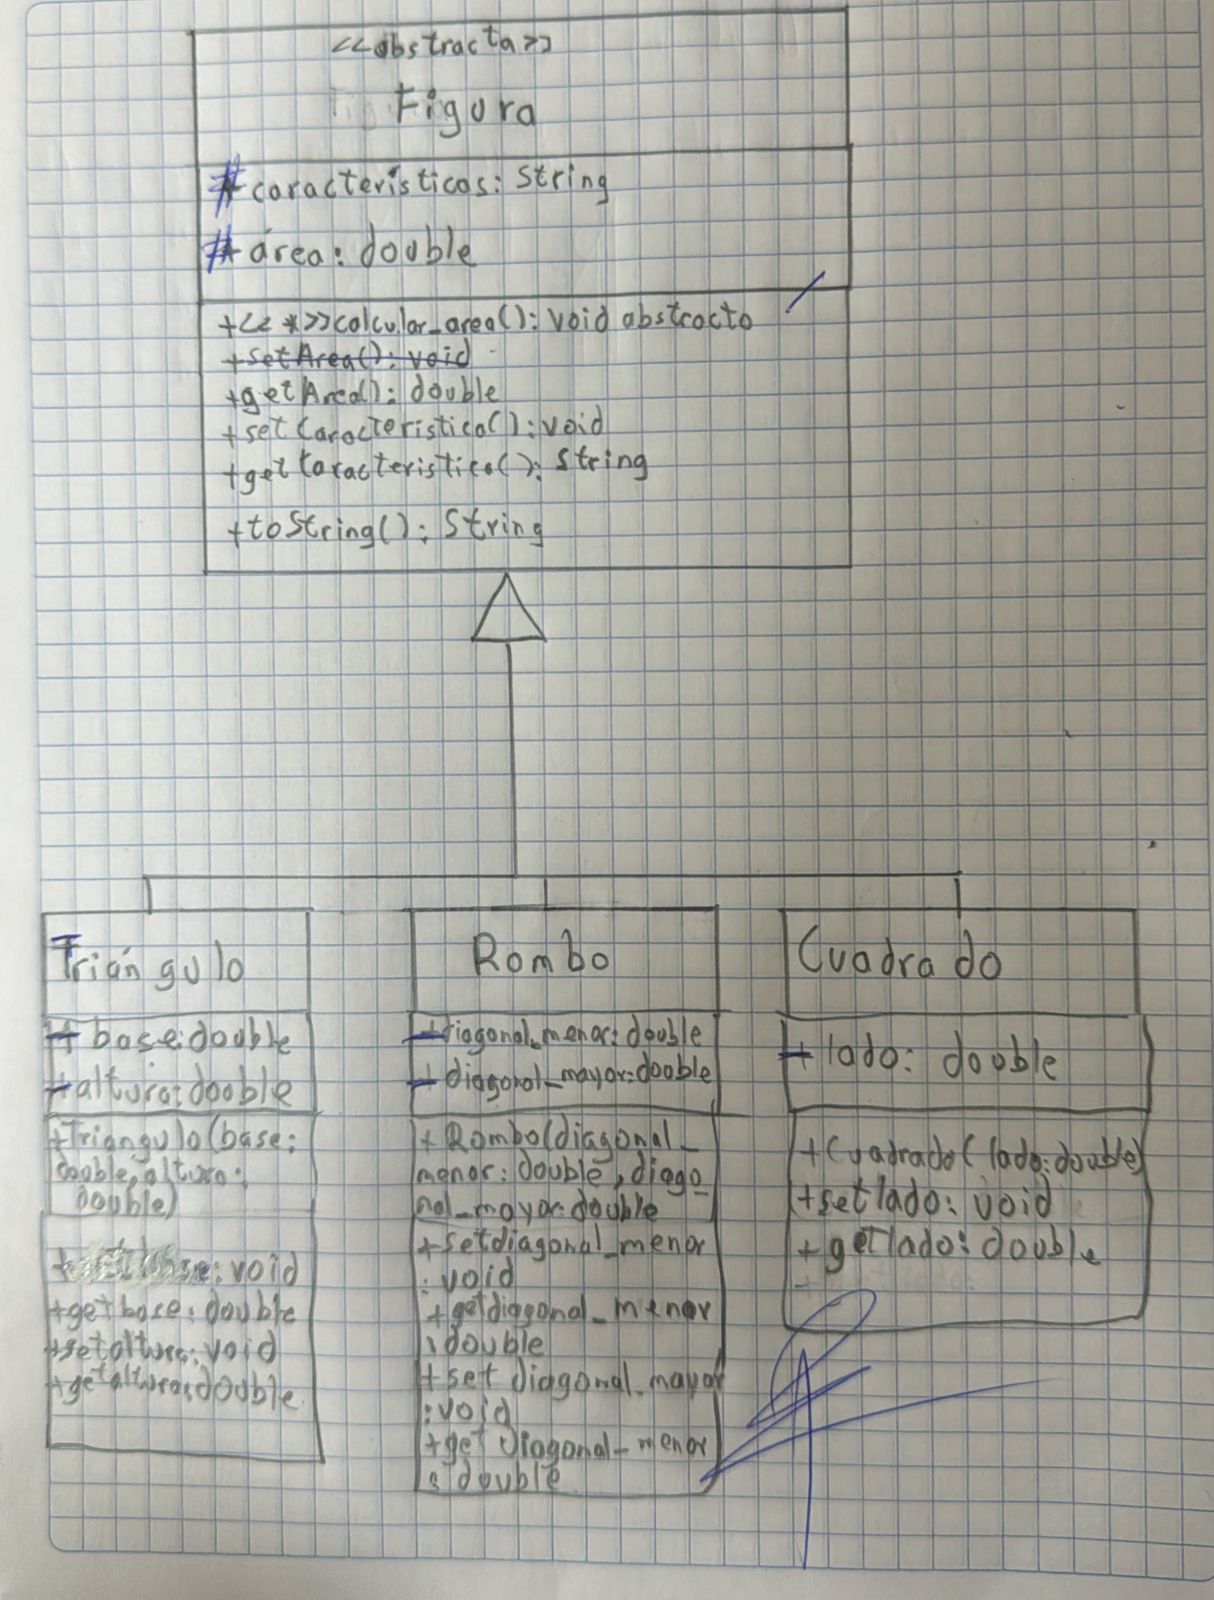 <<abstracta>>
Figura
# caracteristicas: String
# área: double
+<<*>>calcular_area(): void abstracto
+setArea(): void
+getArea(): double
+setCaracteristica(): void
+getCaracteristica(): String
+toString(): String
Triángulo
base: double
altura: double
+Triangulo(base:
double, altura:
double)
: void
+getbase: double
+setaltura: void
+getaltura: double
Rombo
- diagonal_menor: double
- diagonal_mayor: double
+ Rombo(diagonal_
menor: double, diago
nal_mayor: double
+setdiagonal_menor
: void
+getdiagonal_menor
: double
+set diagonal_mayor
: void
+get diagonal_menor
: double
Cuadrado
lado: double
+Cuadrado( lado: double)
+setlado: void
+getlado: double